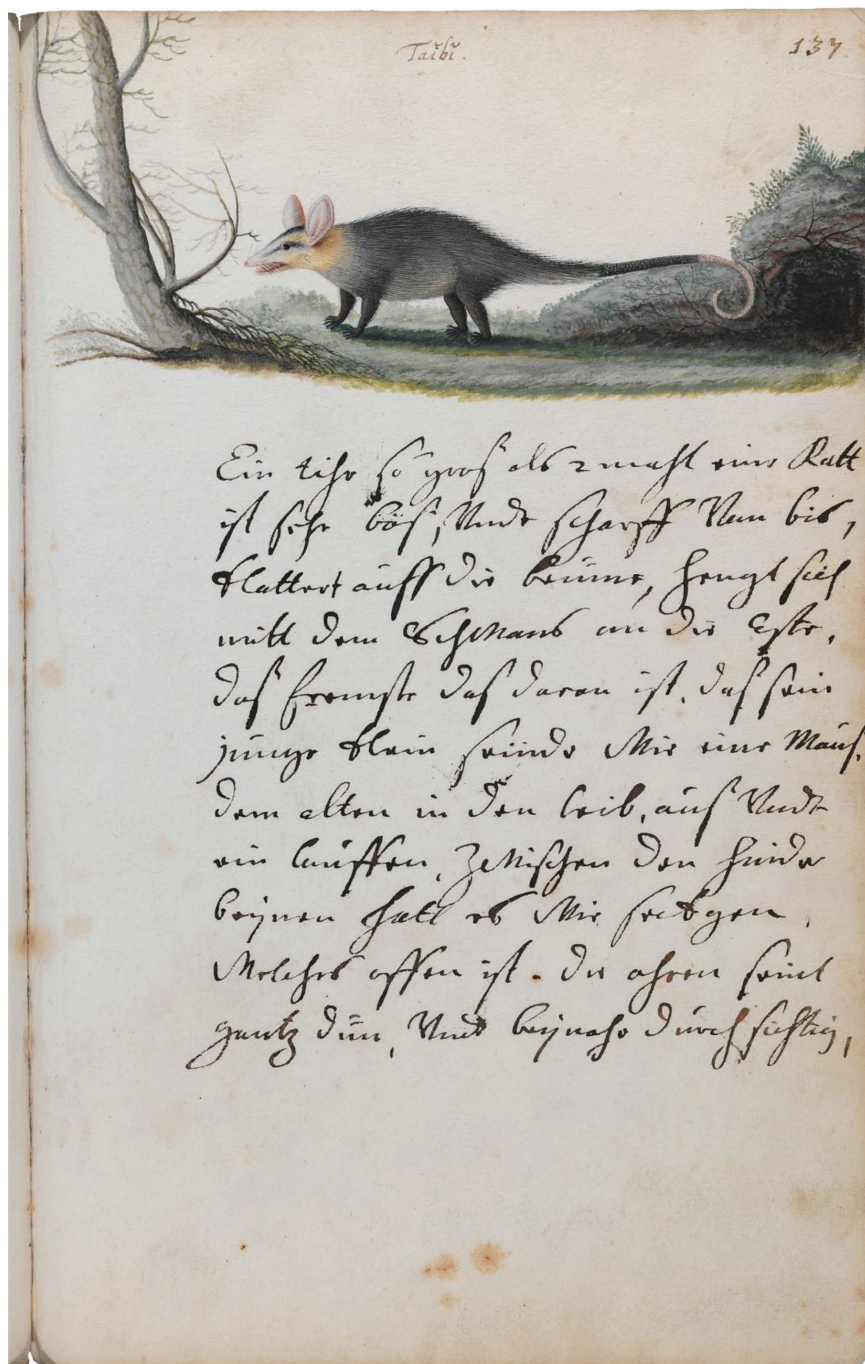 Taibi.
137
Ein tihr so gros als 2 mahl eine Ratt
ist sehr bös, Undt scharff Van bis,
klattert auff die beüme, hengt sich
mitt dem Schwans an die Este,
das fremste das daran ist, das sein
junge klein seindt Wie eine Maus,
dem alten in den leib, aus Undt
ein lauffen, Zwischen den hinder
beijnen hatt es Wie seckgen,
Welches offen ist. die ohren seint
gantz dün, Undt beijnahe durchsichtig,